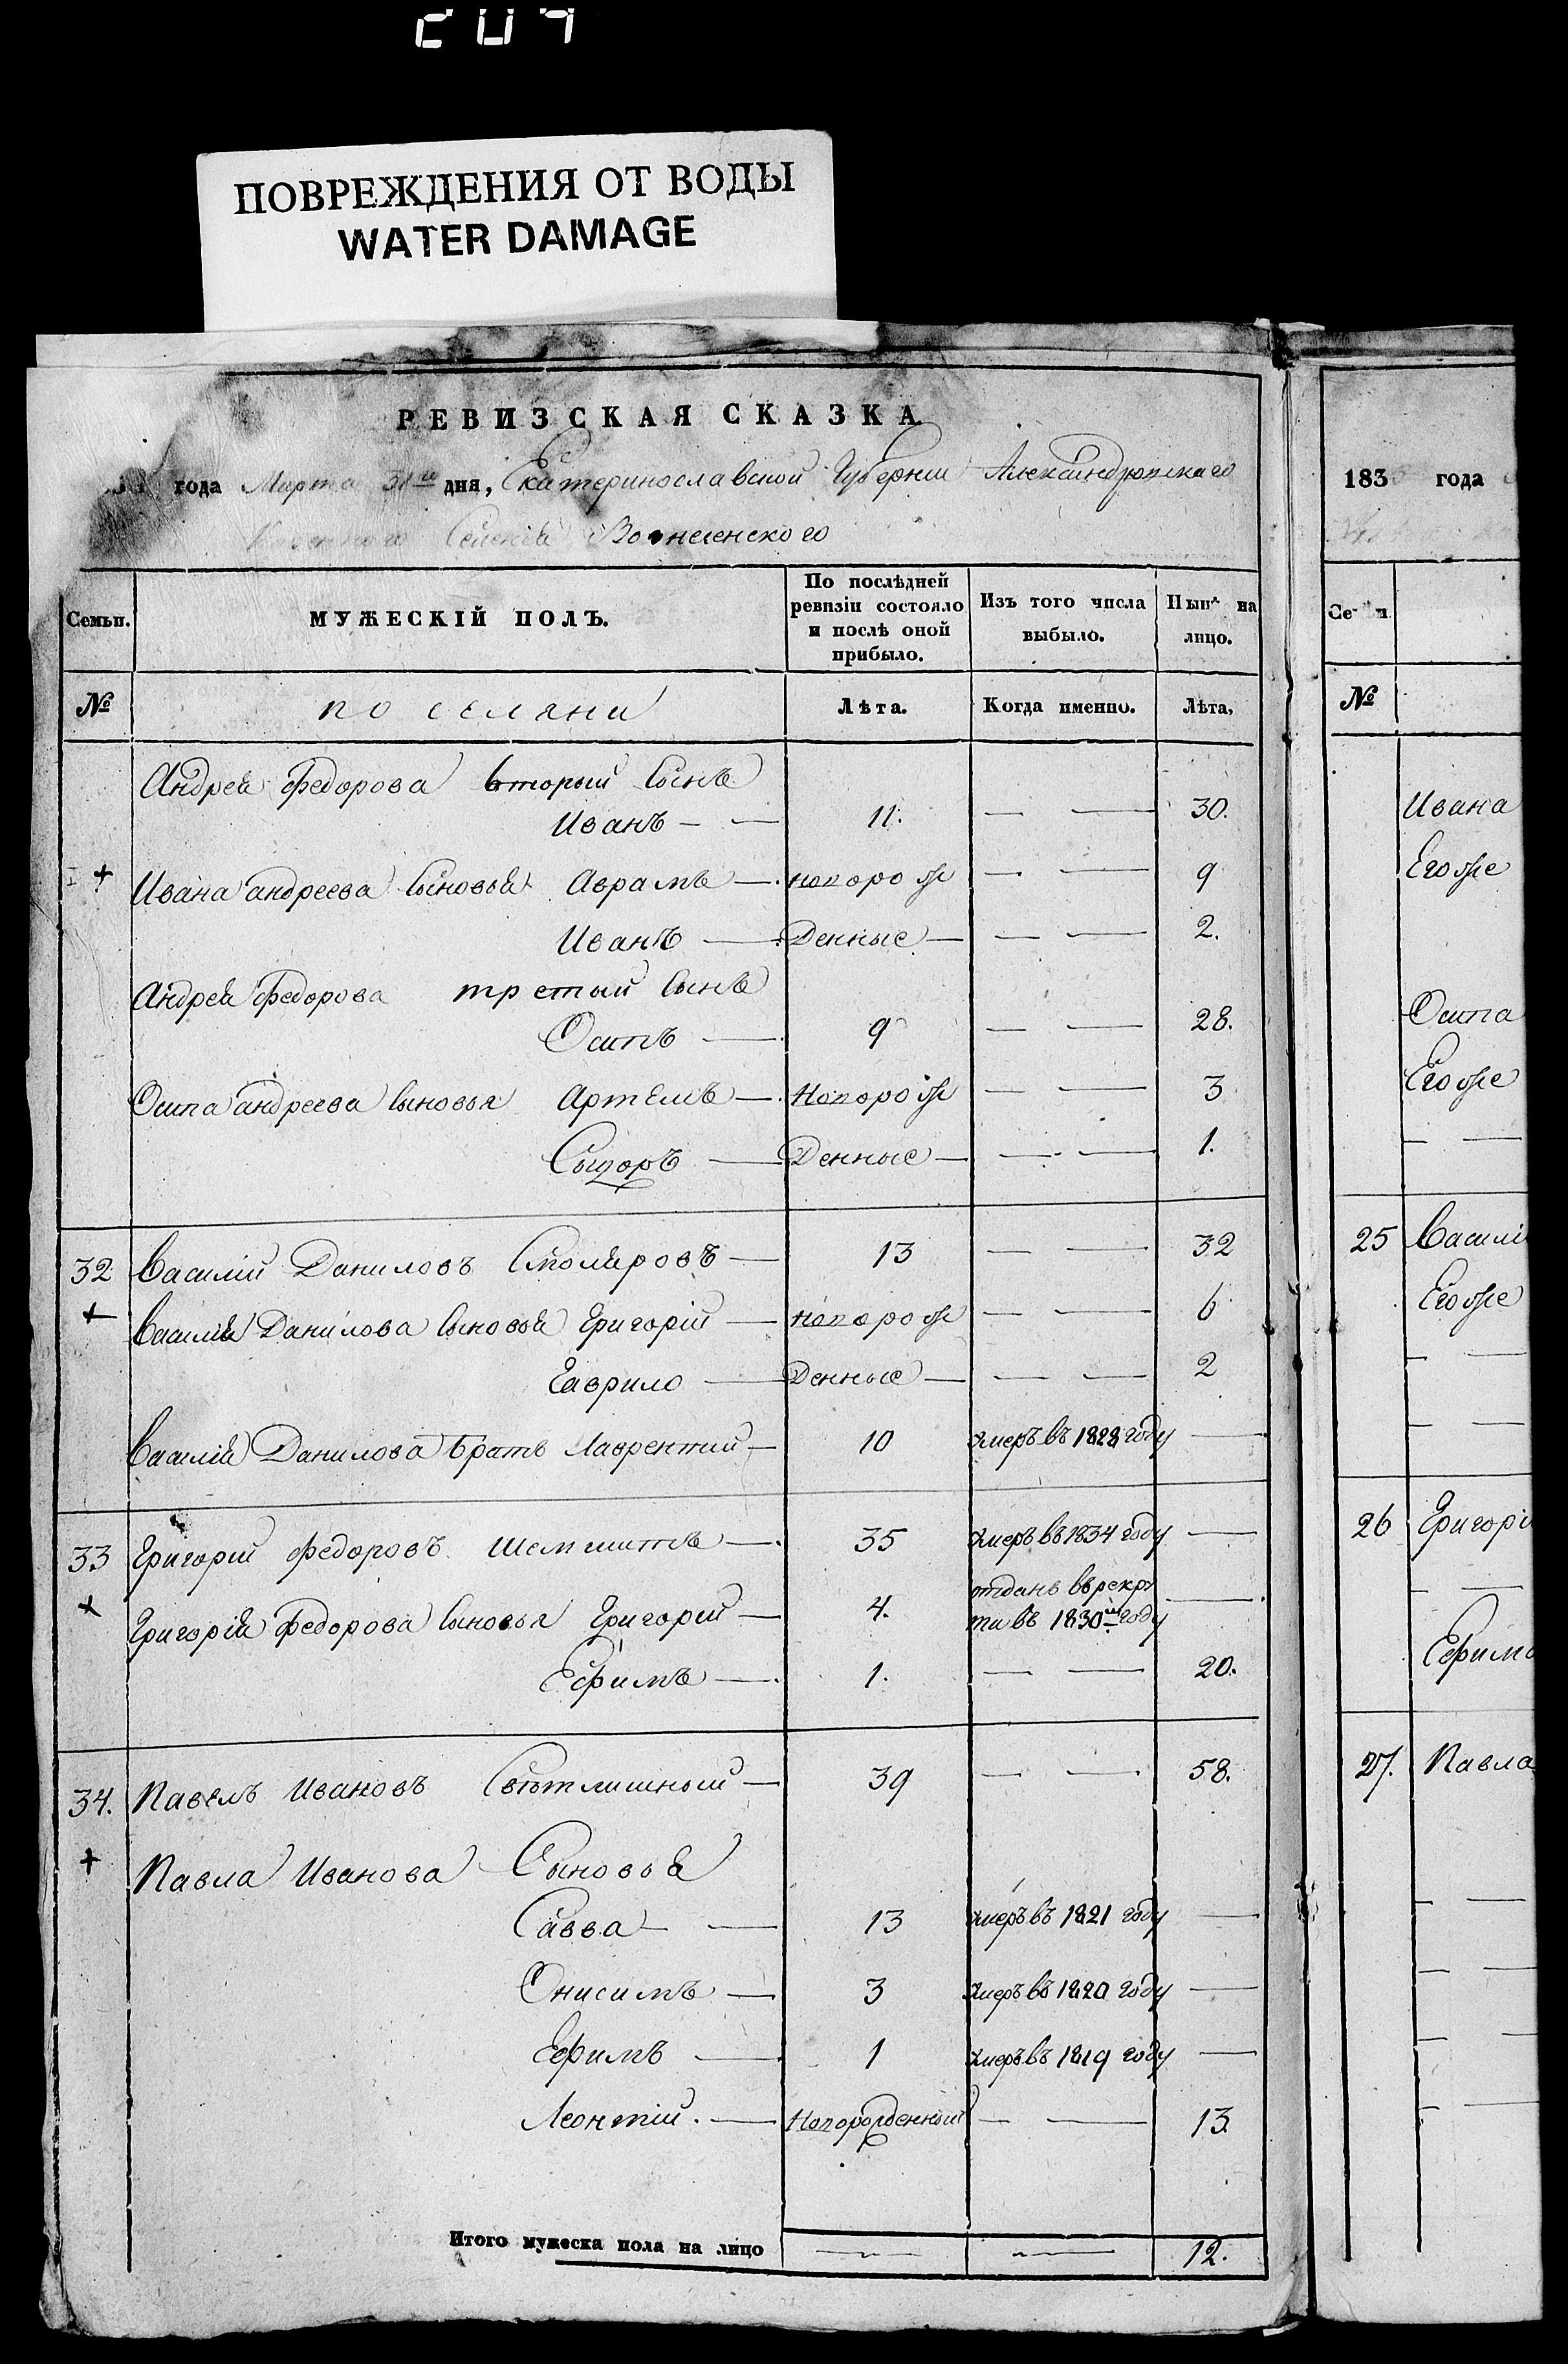 ПОВРЕЖДЕНИЯ ОТ ВОДЫ
WATER DAMAGE
РЕВИЗСКАЯ СКАЗКА
года Марта 31го дня, Екатеринославской Губернии Александровскаго
Казеннаго Селенія Вознесенского
Семьи. МУЖЕСКІЙ ПОЛЪ. По послѣдней ревизіи состояло и послѣ оной прибыло. Изъ того числа выбыло. Нынѣ на лицо.
№ поселяни Лѣта. Когда именно. Лѣта.
Андрея Федорова вторый Сынъ
Иванъ — — 11. — — 30.
+ Ивана андреева Сыновья Аврамъ — новорож — — 9
Иванъ — Денные — — — 2.
Андрея Федорова третый Сынъ
Осипъ — 9 — — 28.
Осипа андреева Сыновья Артемъ — Новорож — — 3
Сыдоръ — Денные — — — 1.
32 Василій Даниловъ Столяровъ — 13 — — 32
+ Василія Данилова Сыновья Григорій — новорож — — 6
Гаврило — Денные — — — 2
Василія Данилова братъ Лаврентий — 10 умеръ въ 1828 году —
33 Григорій Федоровъ — 35 умеръ въ 1834 году —
+ Григорія Федорова Сыновья Григорій — 4. отданъ въ рекру
та въ 1830м году —
Ефимъ — 1. — — 20.
34. Павелъ Ивановъ Свѣтлишный — 39 — — 58.
+ Павла Иванова Сыновья
Савва — — 13 умеръ въ 1821 году —
Онисимъ — 3 умеръ въ 1820 году —
Ефимъ — 1 умеръ въ 1819 году —
Леонтій. — Новорожденный — — 13
Итого мужеска пола на лицо — — 12.
183 года
№
Ивана
Егоже
Осипа
Егоже
25 Васили
Егоже
26 Григорі
Ефима
27. Павла